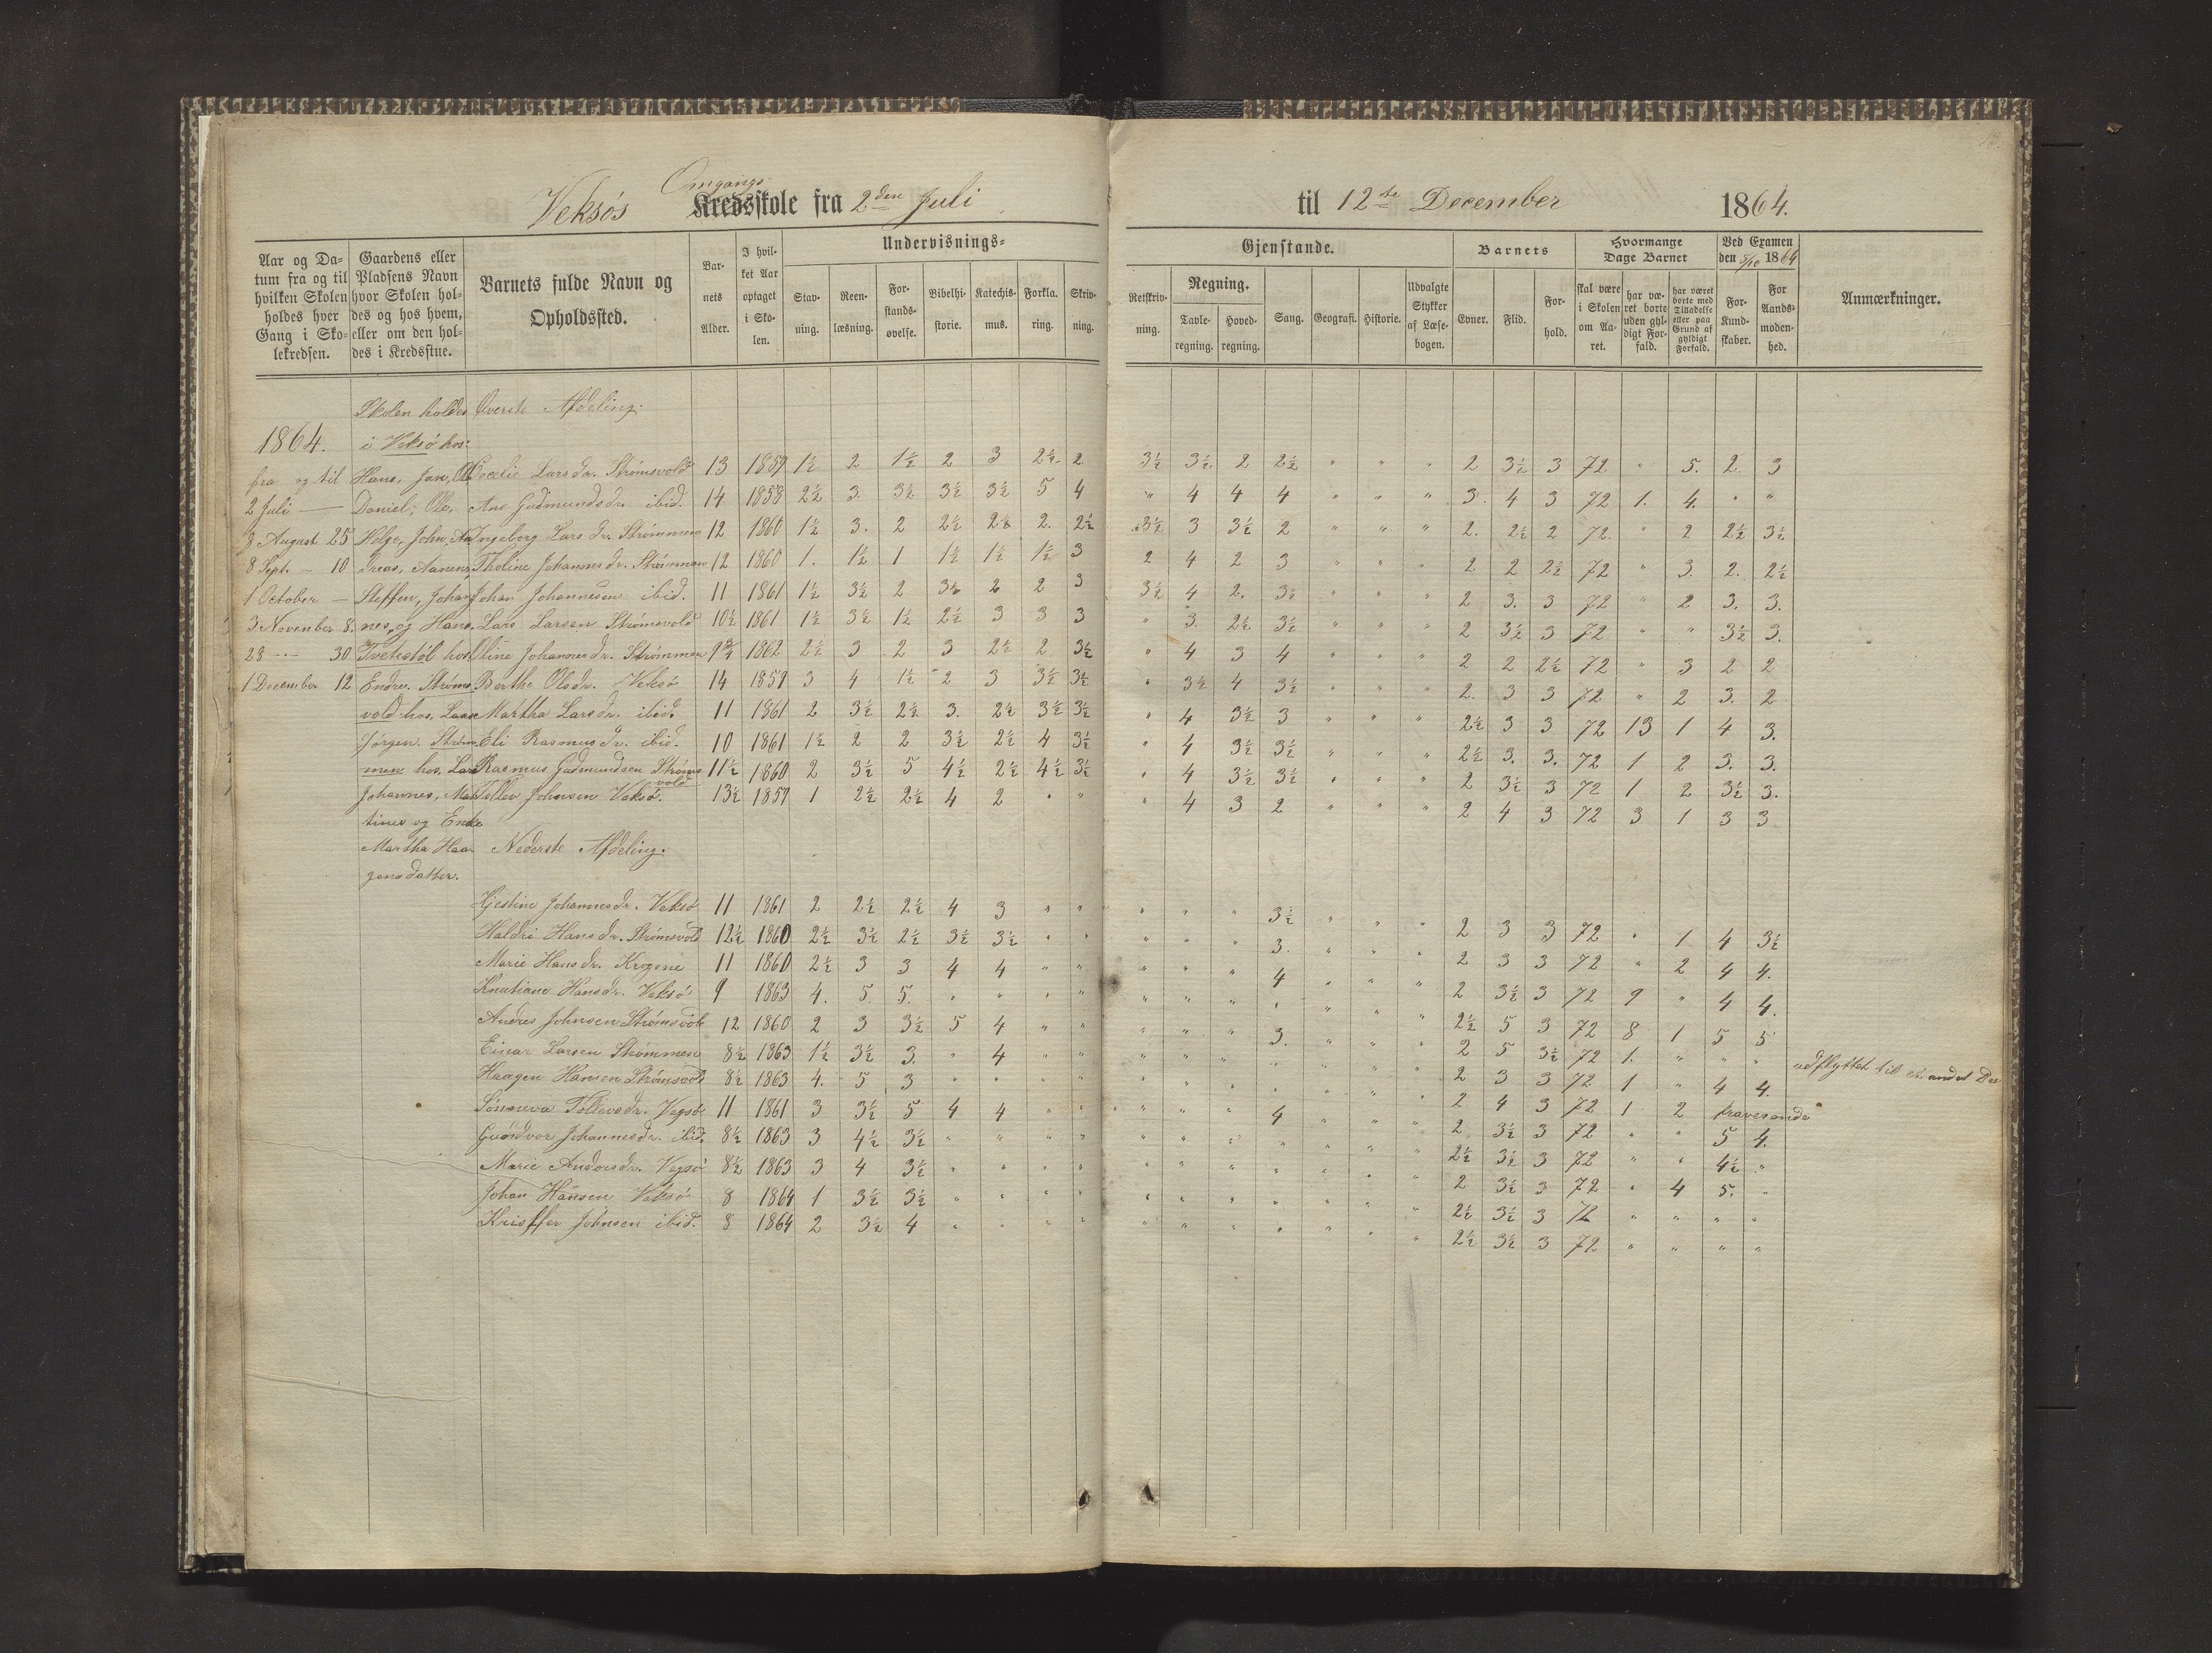 Omgangs
Veksøs Kredsskole fra 2den Juli til 12te December 1864.
Aar og Datum fra og til hvilken Skolen holdes hver Gang i Skolekredsen.
Gaardens eller Pladsens Navn hvor Skolen holdes og hos hvem, eller om den holdes i Kredsstue.
Barnets fulde Navn og Opholdssted.
Barnets Alder.
I hvilket Aar optaget i Skolen.
Undervisnings=
Stavning. Reenlæsning. Forstandsøvelse. Bibelhistorie. Katechismus. Forklaring. Skrivning.
Gjenstande.
Retskrivning. Regning. Tavleregning. Hovedregning. Sang. Geografi. Historie. Udvalgte Stykker af Læsebogen.
Barnets
Evner. Flid. Forhold.
Hvormange Dage Barnet
skal være i Skolen om Aaret. har været borte uden gyldigt Forfald. har været borte med Tilladelse eller paa Grund af gyldigt Forfald.
Ved Examen den 5/10 1864
For Kundskaber. For Aandsmodenhed.
Anmærkninger.
Skolen holdes Øverste Afdeling.
1864. i Veksø hos:
fra og til Hans, Jan, Ol Larsdr. Strømsvold 13 1859 1½ 2 1½ 2 3 2½ 2 3½ 3½ 2 2½ " " " 2 3½ 3 72 " 5. 2. 3
2 Juli — Daniel, Ole, Ane Gudmundsdr. ibid. 14 1858 2½ 3. 3½ 3½ 3½ 5 4 " 4 4 4 " " " 3. 4 3 72 1. 4. " "
3 August 25 Helge, John, An Ingeborg Larsdr. Strømmen 12 1860 1½ 3. 2 2½ 2½ 2. 2½ 3½ 3 3½ 2 " " " 2. 2½ 2 72. " 2 2½ 3½
8 Sept. - 10 dreas, Aanens, Tholine Johannesdr. Strømmen 12 1860 1. 1½ 1 1½ 1½ 1½ 3 2 4 2 3 " " " 2 2 2½ 72 " 3. 2. 2½
1 October — Steffen, Johan Johan Johannesen ibid. 11 1861 1½ 3½ 2 3½ 2 2 3 3½ 4 2. 3½ " " " 2 3. 3 72 " 2 3. 3.
3 November 8. nes, og Hans. Lars Larsen Strømsvold 10½ 1861 1½ 3½ 1½ 2½ 3 3 3 " 3. 2½ 3½ " " " 2 3½ 3 72 " " 3½ 3.
28 — 30 Tvetestøl hos Oline Johannesdr. Strømmen 9¾ 1862 2½ 3 2 3 2½ 2 3½ " 4 3 4 " " " 2 2 2½ 72 " 3 2 2
1 December 12 Endre. Strøms Berthe Olsdr. Veksø 14 1859 3 4 1½ 2 3 3½ 3½ " 3½ 4 3½ " " " 2. 3 3 72 " 2 3. 2
vold hos Lars Martha Larsdr. ibid. 11 1861 2 3½ 2½ 3. 2½ 3½ 3½ " 4 3½ 3 " " " 2½ 3 3 72 13 1 4 3.
Jørgen. Strøm Eli Rasmusdr. ibid. 10 1861 1½ 2 2 3½ 2½ 4 3½ " 4 3½ 3½ " " " 2½ 3. 3. 72 1 2 3. 3.
men hos Lars Rasmus Gudmundsen Strømsvold 11½ 1860 2 3½ 5 4½ 2½ 4½ 3½ " 4 3½ 3½ " " " 2 3½ 3 72 1 2 3½ 3.
Johannes, Mar Tollev Johnsen Veksø. 13½ 1859 1 2½ 2½ 4 2 " " " 4 3 2 " " " 2 4 3 72 3 1 3 3
tines og Enke
Martha Haa- Nederste Afdeling.
gensdatter.
Kjestine Johannesdr. Veksø 11 1861 2 2½ 2½ 4 3 " " " " " 3½ " " " 2 3 3 72 " 1 4 3½
Haldri Hansdr. Strømsvold 12½ 1860 2½ 3½ 2½ 3½ 3½ " " " " " 3. " " " 2 3 3 72 " 2 4 4.
Marie Hansdr. Krogene 11 1860 2½ 3 3 4 4 " " " " " 4 " " " 2 3½ 3 72 9 " 4 4.
Hansdr. Veksø 9 1863 4. 5 5. " " " " " " " " " " " 2½ 5 3 72 8 1 5 5
Andres Johnsen Strømsvold 12 1860 2 3 3½ 5 4 " " " " " 3. " " " 2 5 3½ 72 1. " " " udflyttet til et andet Di-
Einar Larsen Strømmen 8½ 1863 1½ 3½ 3. " 4 " " " " " " " " " 2 3 3 72 1 " 4 4.
Haagen Hansen Strømsvold 8½ 1863 4. 5 3 " " " " " " " " " " " 2 4 3 72 1 2 fraværende
Sønneva Tollevsdr. Vegsø 11 1861 3 3½ 5 4 4 " " " " " 4 " " " 2 3½ 3 72 " " 5 4.
Johannesdr. ibid. 8½ 1863 3 4½ 3½ " " " " " " " " " " " 2½ 3½ 3 72 " " 4½ "
Marie Andersdr. Vegsø 8½ 1863 3 4 3½ " " " " " " " " " " " 2 3½ 3 72 " 4 5. "
Johan Hansen Veksø 8 1864 1 3½ 3½ " " " " " " " " " " " 2½ 3½ 3 72 " " " "
Kristffer Johnsen ibid. 8 1864 2 3½ 4 " " " " " " " " " " " 2½ 3½ 3 72 " " " "